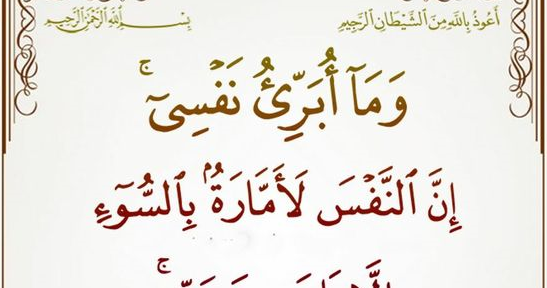 أَعُوذُ بِاللَّهِ مِنَ الشَّيْطَانِ الرَّجِيمِ
بِسْمِ اللَّهِ الرَّحْمَٰنِ الرَّحِيمِ
وَمَآ أُبَرِّئُ نَفْسِىٓ ۚ
إِنَّ ٱلنَّفْسَ لَأَمَّارَةٌۢ بِٱلسُّوٓءِ